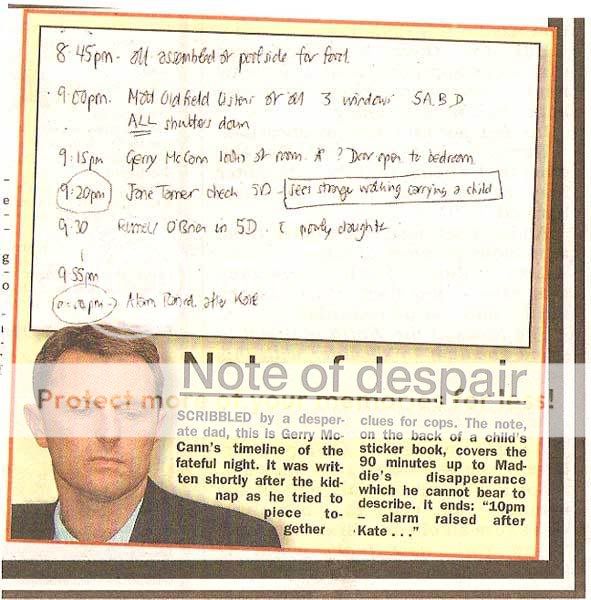 8:45pm - all assembled at poolside for food
9:00pm. Matt Oldfield listens at all 3 windows 5A,B,D
ALL shutters down
9:15pm Gerry McCann looks at room A ? Door open to bedroom
9:20pm Jane Tanner check 5D - sees stranger walking carrying a child
9:30 Russell O'Brien in 5D. poorly daughter
9 55pm
Alarm Raised after Kate
Note of despair
Protect more of your memories for less!
SCRIBBLED by a desper-
ate dad, this is Gerry Mc-
Cann's timeline of the
fateful night. It was writ-
ten shortly after the kid-
nap as he tried to
piece to-
gether
clues for cops. The note,
on the back of a child's
sticker book, covers the
90 minutes up to Mad-
die's disappearance
which he cannot bear to
describe. It ends: "10pm
– alarm raised after
Kate . . ."